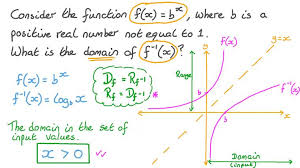 Consider the function f(x) = bˣ, where b is a
positive real number not equal to 1.
What is the domain of f⁻¹(x)?
f(x) = bˣ
f⁻¹(x) = log_b x
D_f = R_f⁻¹
R_f = D_f⁻¹
The domain is the set
of input values.
x > 0 ✓
y
f(x)
Range
b
f⁻¹(x)
b
x
Domain
(input)